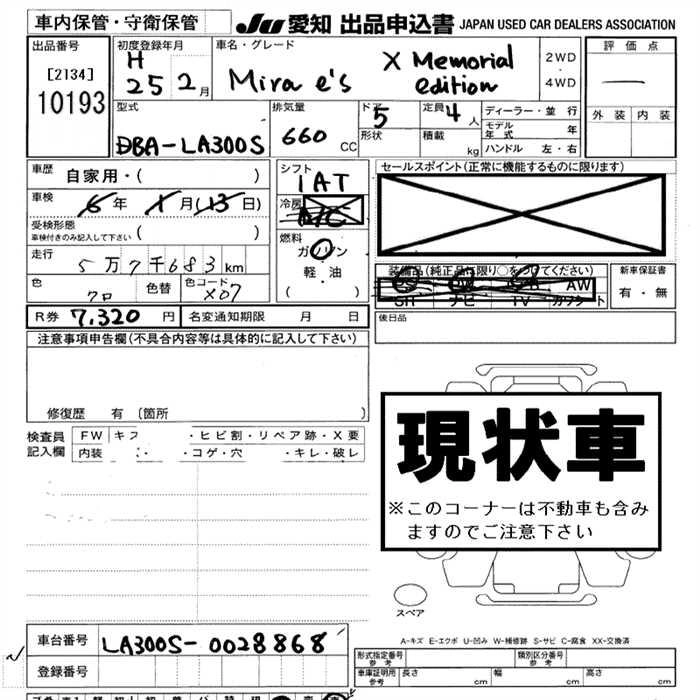 車内保管・守衛保管
JU 愛知 出品申込書 JAPAN USED CAR DEALERS ASSOCIATION
出品番号
[2134]
10193
初度登録年月
H 25 2月
車名・グレード
Mira e's X Memorial edition
2WD・4WD
評価点
外装 内装
型式
DBA-LA300S
排気量
660 CC
ドア 5
形状
定員 4人
積載 kg
ディーラー・並行
モデル年式 年
ハンドル 左・右
車歴 自家用・( )
車検 年 月(13日)
受検形態
車検付きのみ記入して下さい ( )
走行
5万7千683km
色 クロ
色替
色コード X07
シフト
IAT
冷房
A/C
燃料
ガソリン
軽・油
( )
セールスポイント(正常に機能するものに限ります)
装備品(純正品に限り○をつけてください)
AW
ナビ TV
新車保証書
有・無
R券 7,320円
名変通知期限 月 日
後日品
注意事項申告欄(不具合内容等は具体的に記入して下さい)
修復歴 有 〔箇所 〕
検査員記入欄
FW キズ ・ヒビ割・リペア跡・X要
内装 ・コゲ・穴 ・キレ・破レ
現状車
※このコーナーは不動車も含み
ますのでご注意下さい
スペア
A-キズ E-エクボ U-凹み W-補修跡 S-サビ C-腐食 XX-交換済
車台番号 LA300S-0028868
登録番号
形式指定番号 参考
類別区分番号 参考
車庫証明用 参考 長さ cm 幅 cm 高さ cm